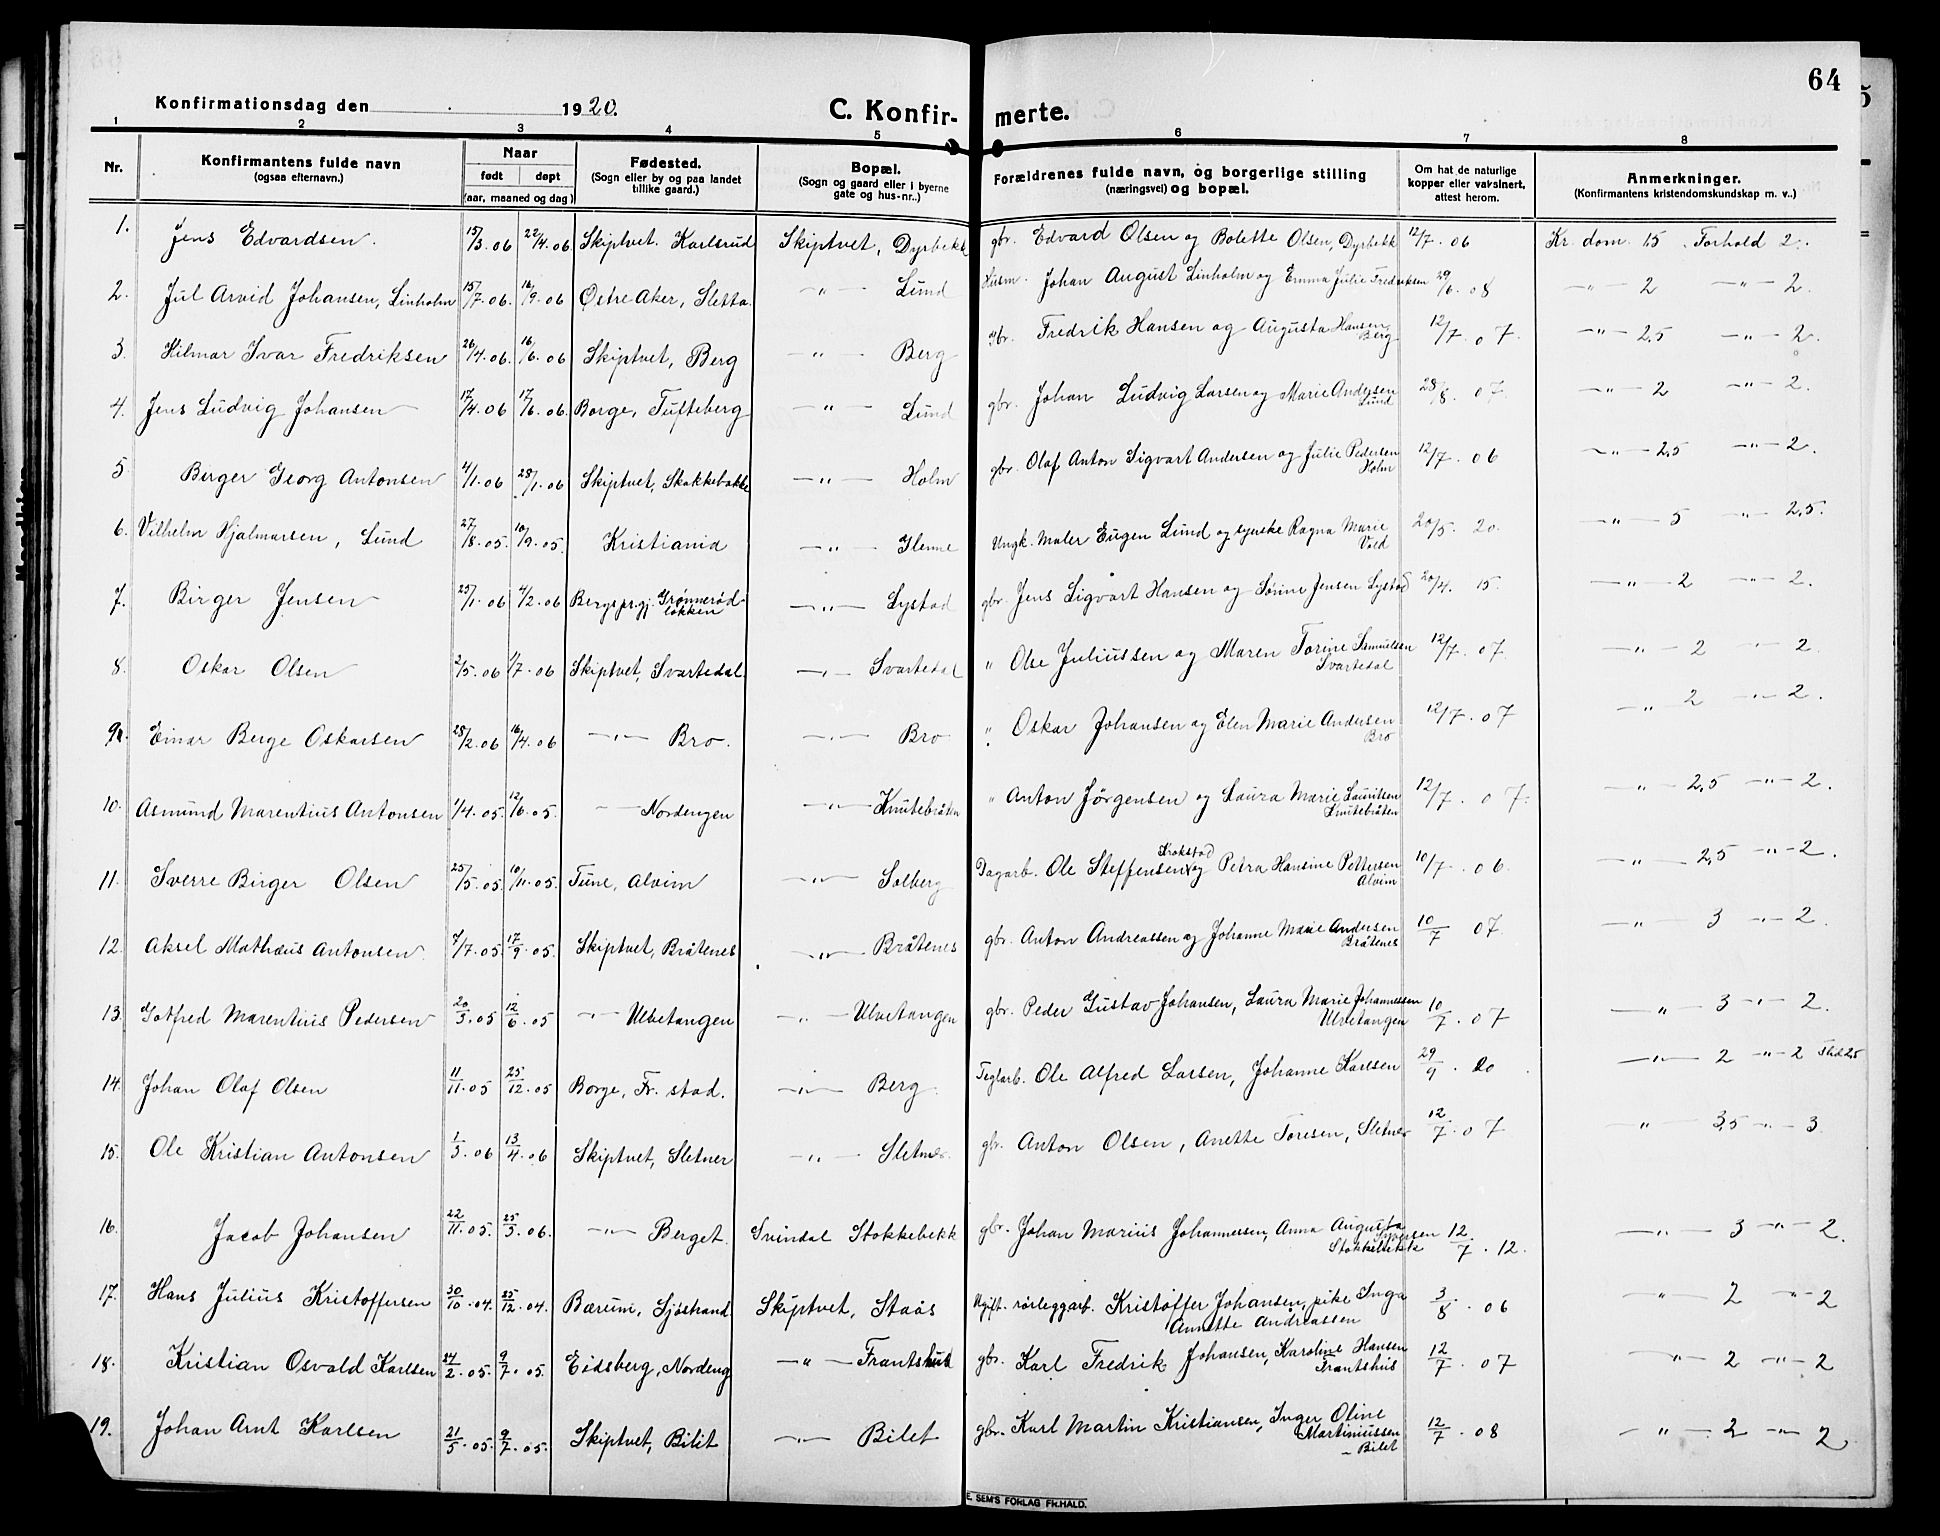 64
Konfirmationsdag den 1920.
C. Konfir- merte.
1 2 3 4 5 6 7 8
Nr. Konfirmantens fulde navn (ogsaa efternavn.) Naar født døpt (aar, maaned og dag) Fødested. (Sogn eller by og paa landet tillike gaard.) Bopæl. (Sogn og gaard eller i byerne gate og hus-nr..) Forældrenes fulde navn, og borgerlige stilling (næringsvei) og bopæl. Om hat de naturlige kopper eller vaksinert, attest herom. Anmerkninger. (Konfirmantens kristendomskundskap m. v..)
1. Jens Edvardsen. 15/3.06 22/4.06 Skiptvet. Karlsrud Skiptvet, Dyrbekk gbr. Edvard Olsen og Bolette Olsen, Dyrbekk 12/7.06 Kr. dom. 1,5 Forhold 2.
2. Jul Arvid Johansen, Linholm 15/7.06. 16/9.06 Østre Aker, Sletta -"- Lund Husm. Johan August Linholm og Emma Julie Fredriksen 29/6.08 -"- 2 -"- 2.
3. Hilmar Ivar Fredriksen 26/4.06. 16/6.06 Skiptvet, Berg -"- Berg gbr. Fredrik Hansen og Augusta Hansen Berg 12/7.07. -"- 2,5 -"- 2.
4. Jens Ludvig Johansen 17/4.06 17/6.06. Borge, Tufteberg -"- Lund gbr. Johan Ludvig Larsen og Marie Andersen Lund 28/8.07. -"- 2 -"- 2.
5. Berger Georg Antonsen 4/1.06 28/1.06 Skiptvet, Skakkebakke -"- Holm gbr. Olaf Anton Sigvart Andersen og Julie Pedersen Holm 12/7.06 -"- 2,5 -"- 2.
6. Vilhelm Hjalmarsen, Lund 27/8.05. 10/9.05. Kristiania -"- Glenne Ungk. Maler Eugen Lund og tjenske Ragna Marie Vold 20/5.20. -"- 5 -"- 2,5.
7. Birger Jensen 25/1.06 4/2.06 Bergs pr.gj. Grønnerødløkken -"- Lystad gbr. Jens Sigvart Hansen og Sørine Jensen Lystad 20/4.15. -"- 2 -"- 2.
8. Oskar Olsen 2/5.06 1/7.06 Skiptvet, Svartedal. -"- Svartedal " Olse Juliussen og Maren Torine Samuelsen Svartedal 12/7.07. -"- 2 -"- 2.
9. Einar Berge Oskarsen 28/2.06 16/4.06 -"- Bro. -"- Bro " Oskar Johansen og Elen Marie Andersen Bro 12/7.07 -"- 2 -"- 2.
10. Asmund Marentius Antonsen 1/4.05. 12/6.05. -"- Nordengen -"- Knutebråten " Anton Jørgensen og Laura Marie Lauritsen Knutebråten 12/7.07. -"- 2,5 -"- 2.
11. Sverre Birger Olsen 25/5.05. 10/11.05. Tune, Alvim -"- Solberg Dagarb. Ole Steffensen Krokstad og Petra Hansine Pettersen Alvim 10/7.06. -"- 2,5 -"- 2.
12. Aksel Mathæus Antonsen 7/7.05 17/9.05. Skiptvet, Bråtenes -"- Bråtenes gbr. Anton Andreassen og Johanne Marie Andersen Bråtenes 10/7 07. -"- 3 -"- 2.
13. Gotfred Marentius Pedersen 20/3.05 12/6.05 -"- Ulvetangen -"- Ulvetangen gbr. Peder Gustav Johansen, Laura Marie Johannessen Ulvetangen 10/7.07 -"- 3 -"- 2.
14. Johan Olaf Olsen 11/11.05 25/12.05 Borge, Fr. stad. -"- Berg. Teglarb. Ole Alfred Larsen, Johanne Karlsen 29/9.20 -"- 2 -"- 2
15. Ole Kristian Antonsen 1/3.06 13/4.06 Skiptvet, Sletner -"- Sletner. gbr. Anton Olsen, Anette Toresen, Sletner 12/7.07 " 3,5 -"- 3
16. Jacob Johansen 22/11.05. 25/3.06. -"- Berget Svindal Stokkebekk gbr. Johan Marius Johannessen, Anna Augusta Syversen Stokkebekk 12/7.12. -"- 3 -"- 2.
17. Hans Julius Kristoffersen 30/10.04. 25/12.04. Bærum, Sjøstrand Skiptvet, Staås Ugift. rørleggarb. Kristoffer Johansen, pike Inga Annette Andreassen 3/8.06 -"- 2 -"- 2
18. Kristian Osvald Karlsen 24/2.05. 9/7.05. Eidsberg, Nordeng -"- Frantshus gbr. Karl Fredrik Johansen, Karoline Hansen Frantshus 12/7.07 -"- 2 -"- 2
19. Johan Arnt Karlsen 21/5.05. 9/7.05. Skiptvet, Bilet -"- Bilet gbr. Karl Martin Kristiansen, Inger Oline Martiniussen - Bilet 12/7.08 -"- 2 -"- 2
E. SEM'S FORLAG FR.HALD.